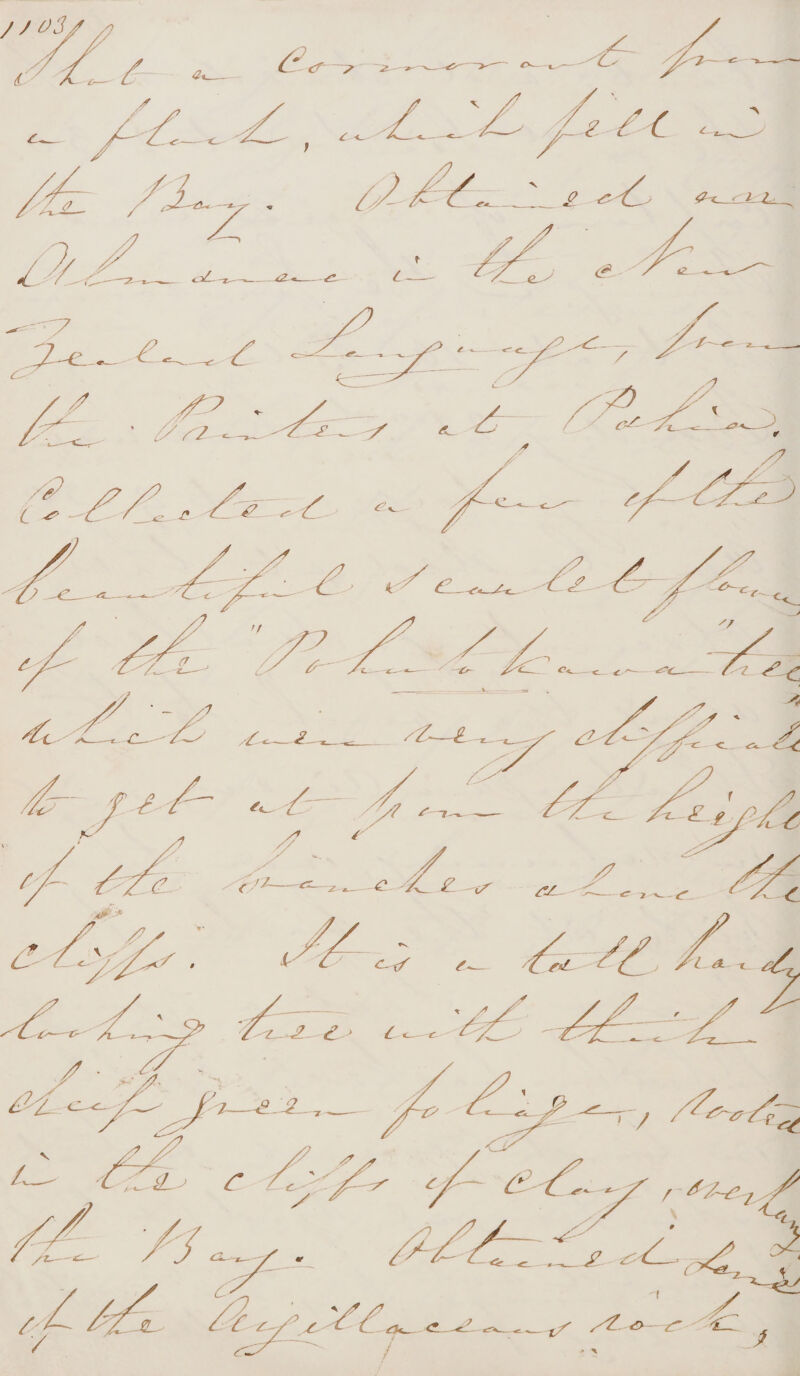 1103
Shot a Cormorant from
a flock, which fell in
the Bay. Obtained an
Almanac in the New
Zealand Language, from
the Printers at Pahia.
Collected a few of the
beautiful scarlet flowers
of the "Pohutokawa" tree,
which were very difficult
to get at from the height
of the branches above the
cliffs. It is a tall hardy
looking tree with thick
deep green foliage, rooted
in the cliffs of clay, overhang
the Bay. Obtained some
of the Argillaceous rock,